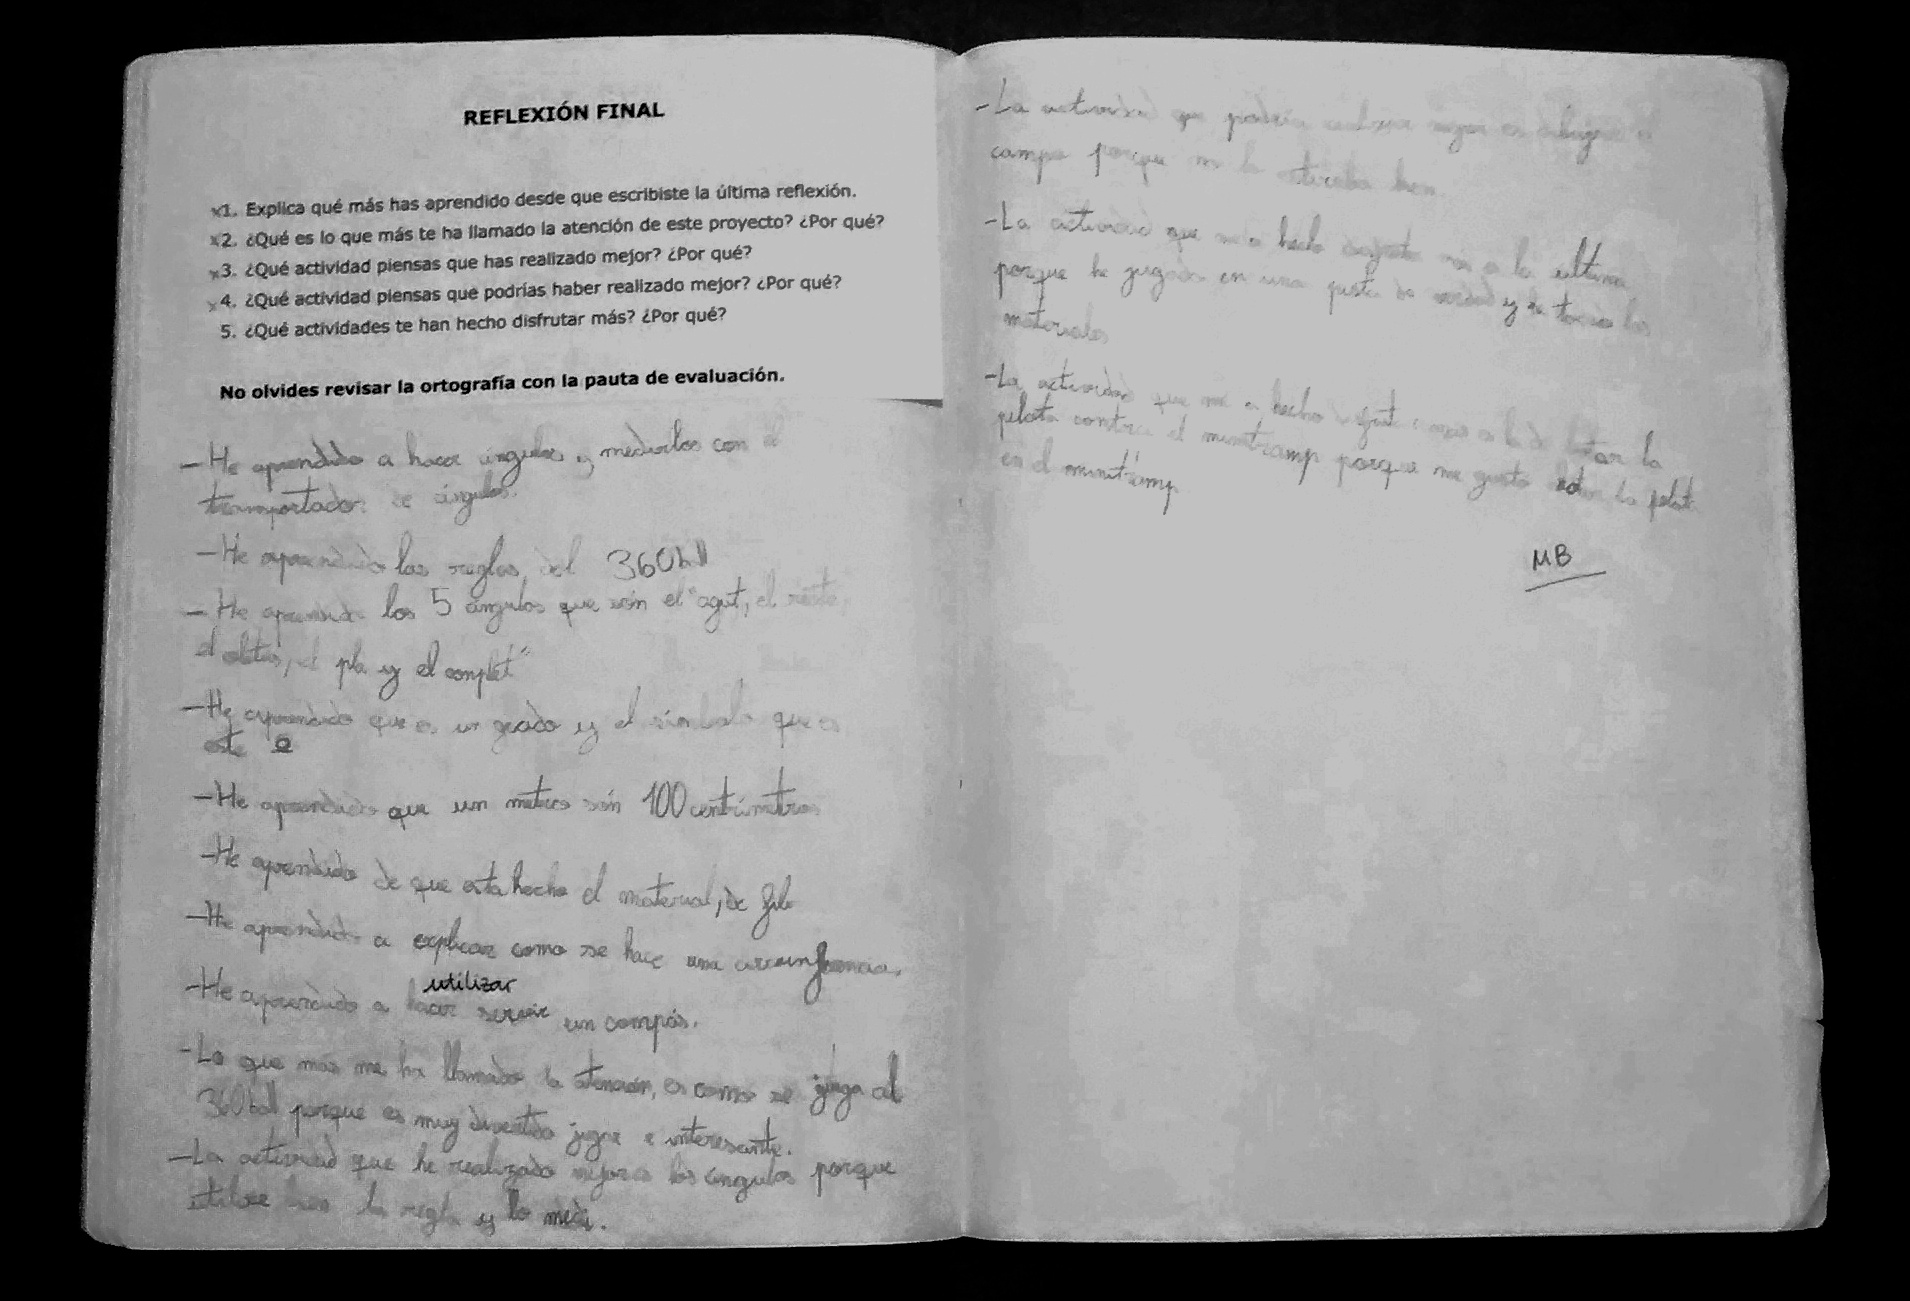 REFLEXIÓN FINAL
x1. Explica qué más has aprendido desde que escribiste la última reflexión.
x2. ¿Qué es lo que más te ha llamado la atención de este proyecto? ¿Por qué?
x3. ¿Qué actividad piensas que has realizado mejor? ¿Por qué?
x4. ¿Qué actividad piensas que podrías haber realizado mejor? ¿Por qué?
5. ¿Qué actividades te han hecho disfrutar más? ¿Por qué?
No olvides revisar la ortografía con la pauta de evaluación.
- He aprendido a hacer ángulos y medirlos con el
transportador de ángulos.
- He aprendido las reglas del 360ball
- He aprendido los 5 ángulos que són el "agut, el recte,
el obtús, el pla y el complet"
- He aprendido que es un grado y el símbolo que es
este º
- He aprendido que un metro són 100 centímetros
- He aprendido de que esta hecho el material, de
- He aprendido a explicar como se hace una
utilizar
- He aprendido a hacer servir un compás.
- Lo que más me ha llamado la atención, es como se juega al
360ball porque es muy divertido jugar e interesante.
- La actividad que he realizado mejor es los ángulos porque
bien la regla y lo medi.
- La actividad que podría mejor es dibujar el
campo porque no lo bien.
- La actividad que hecho más es la última
porque he jugado en una pista de verdad y he tocado los
materiales
- La actividad que me a hecho más es la de botar la
pelota contra el minitramp porque me gusta botar la pelota
en el minitramp.
MB